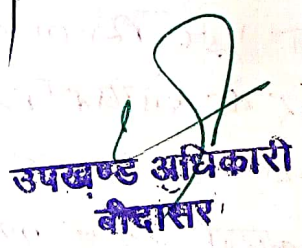 उपखण्ड अधिकारी
बीदासर